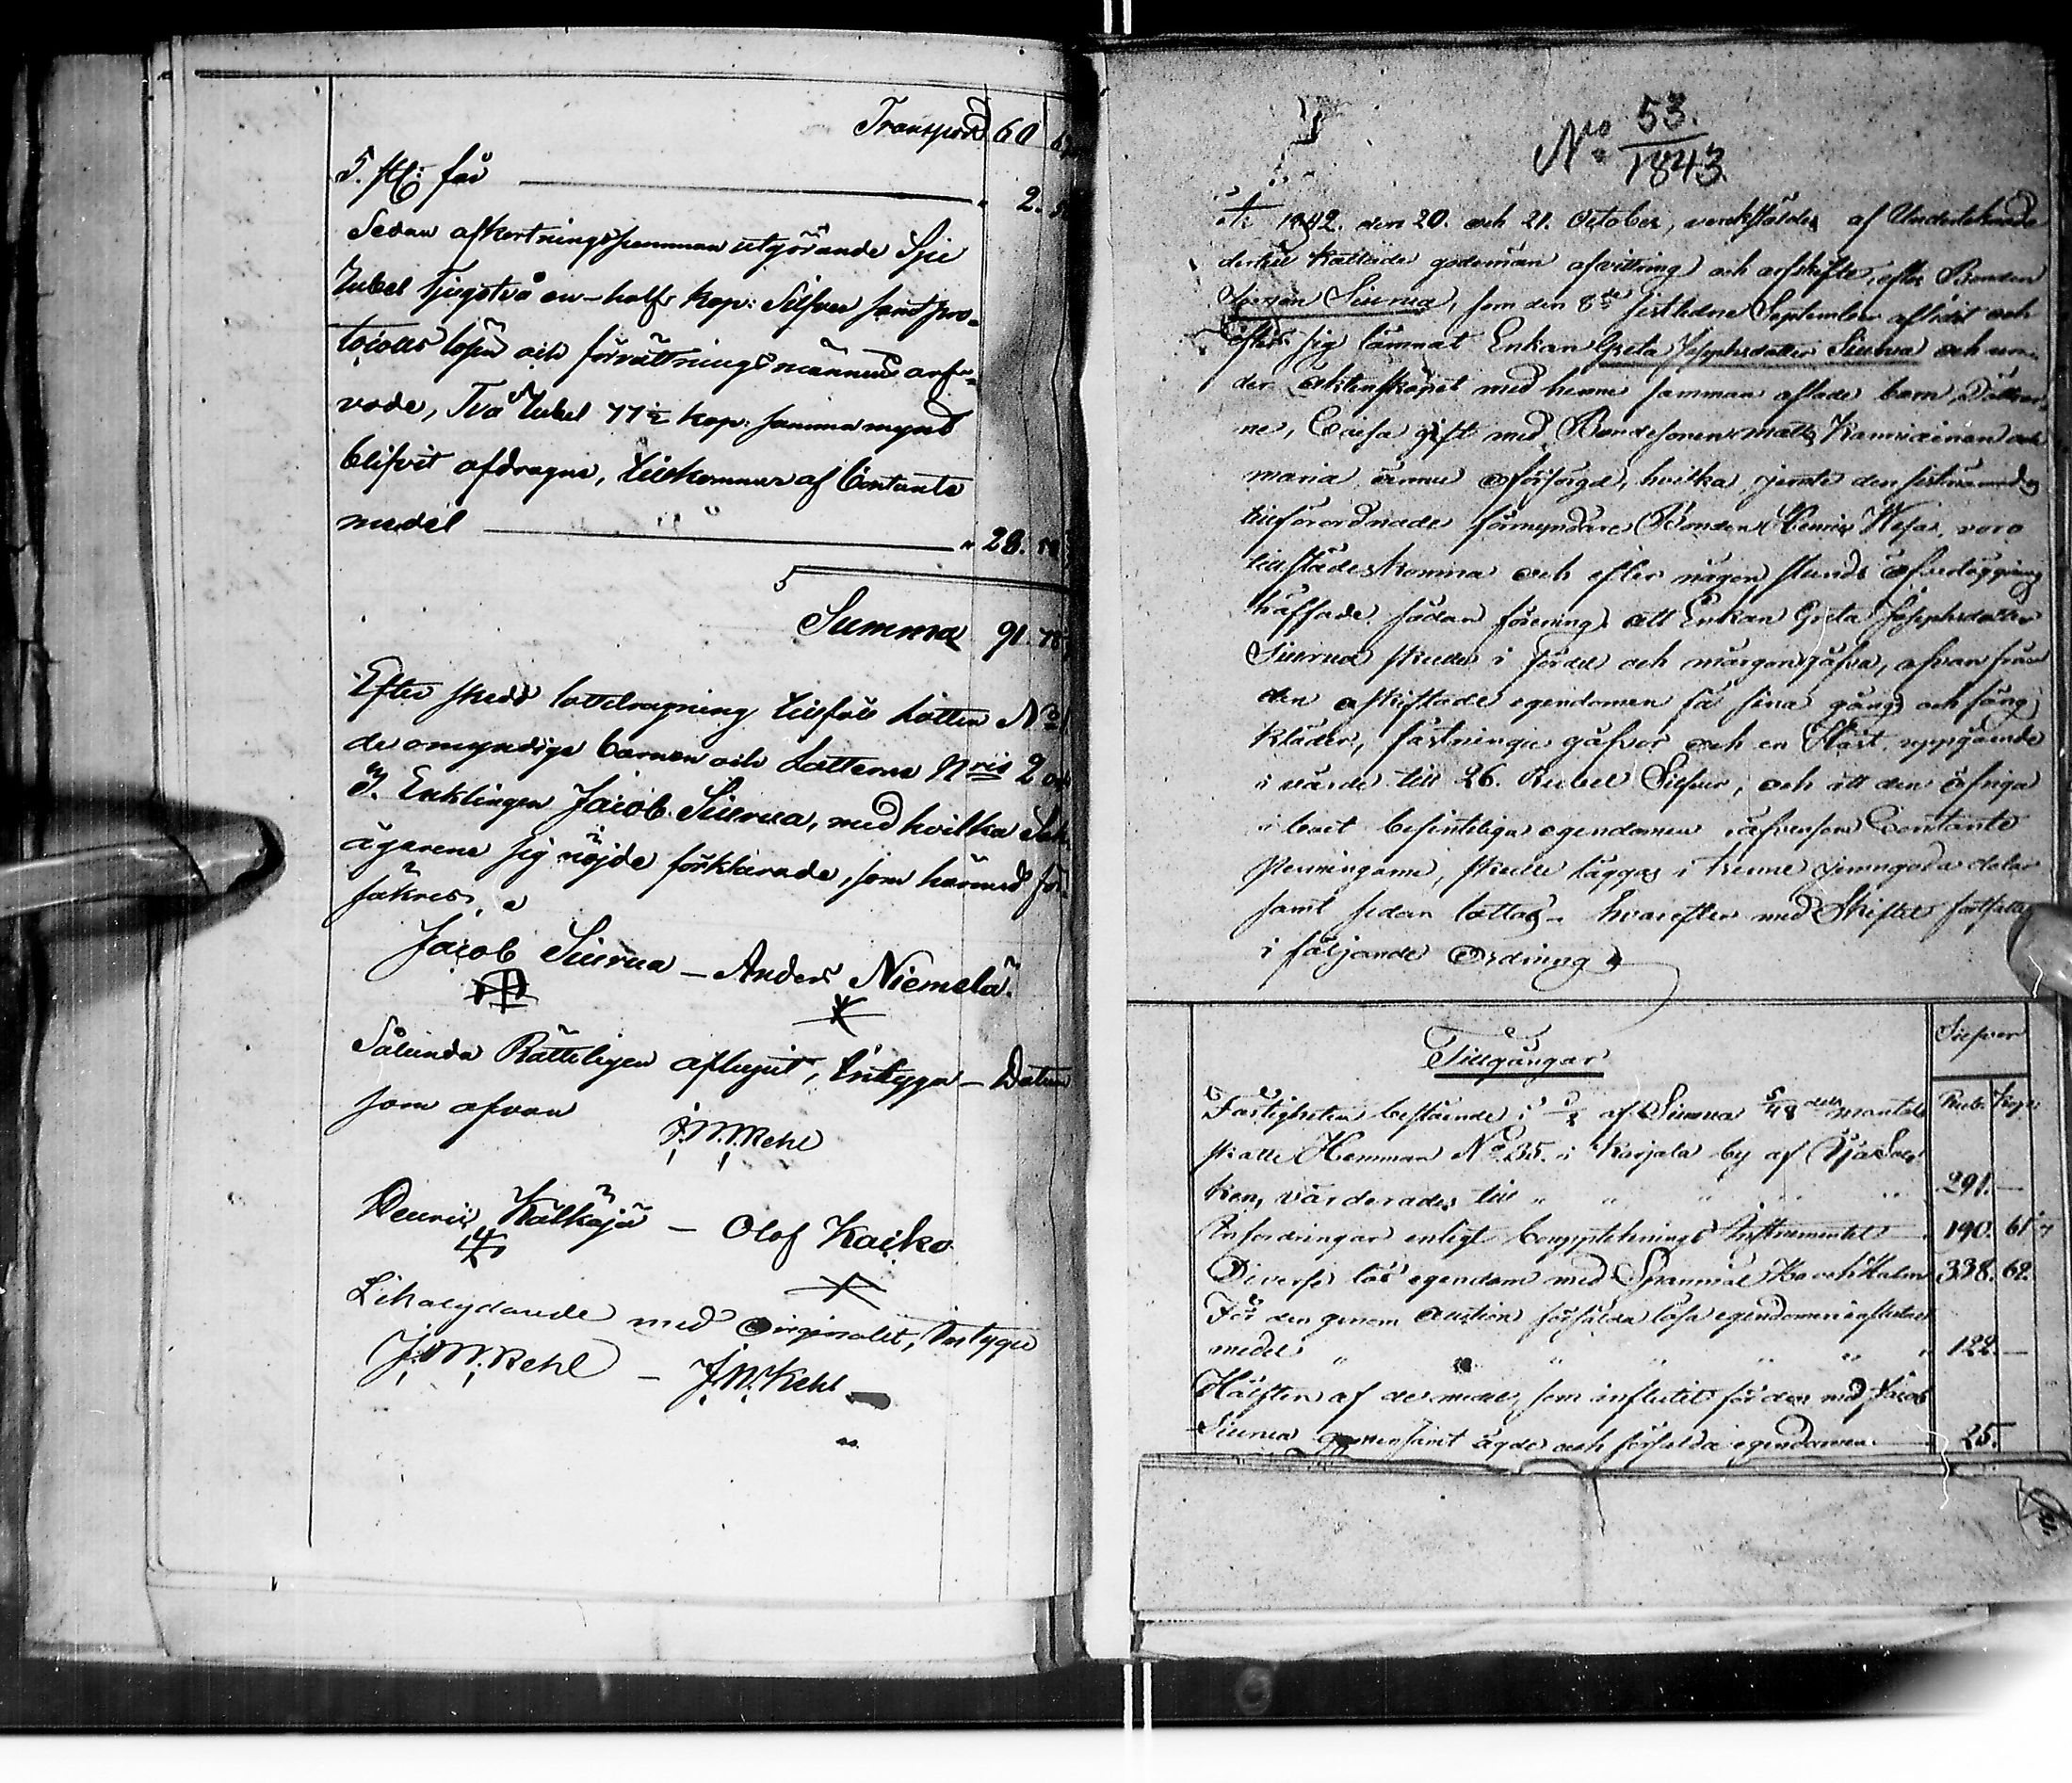 Transport 60
5. st: får 2.
Sedan afkortningspemman utgörande Sju
Rubel tjugotvå en-half kop: Silfver samt pro-
tocolls lösen och förrättningsmännens arf-
vode, Två Rubel 77½ kop: samma mynt
blifvit afdragne, tillkommer af Contante
medel " 28.
Summa 91.
Efter skedd lottdragning tillföll lotten No
de omyndige barnen och Lotterne Nris 2
3. Enklingen Jacob Siurua, med hvilka
ägarene sig nöjde förklarade, som härmed för-
säkres.
Jacob Siurua — Anders Niemelä.
Sålunda Rätteligen aflupit, Intyga — Datum
som ofvan
J. W. Kehl
Henric Kälkäjä — Olof Kaiko
Likalydande med Originalet, Intyga
J. W. Kehl — J. W. Kehl
No 53.
1843
År 1842. den 20. och 21. October, verkställdes af Undertecknade
dertill kallade godemän afvittring och arfskifte, efter Bonden
Siurua, som den 8de sistledne September aflidit och
efter sig lämnat Enkan Greta Josephsdotter Siurua och un-
der äktenskapet med henne samman aflade barn, Döttrar-
ne, Caisa gift med Bondesonen Matts och
Maria ännu oförsörgd, hvilka jemte den sistnämndes
tillförordnade förmyndare Bonden Henric Wesa, voro
tillstädeskomna och efter någon stunds öfverläggning
träffade sådan förening att Enkan Greta Josephsdotter
Siurua skulle i fördel och morgongåfva, ofvan från
den oskiftade egendomen få sina gång och säng
kläder, fästninge gåfvor och en Häst uppgående
i värde till 26. Rubel Silfver, och att den öfriga
i boet befintliga egendomen äfvensom Contante
penningarne, skulle läggas i trenne jemngoda delar
samt sedan lottas — hvarefter med Skiftet fortsattes
i följande Ordning
Tillgångar
Silfver
Rub. Kop:
Fastigheten bestående i ½ af Siurua 5/48 dels mantals
skatte Hemman No 35. i Korjala by af
ken, värderades till " " " " 291. —
Infordringar enligt Bouppteknings Instrumentet 190. 61
Diverse lös egendom med Spannmål Ho och Halm 338. 62.
För den genom auction försålda lösa egendomen influtne
medel " " " " 122. —
Hälften af de medel, som influtit för den med Jacob
Siurua gemensamt ägde och försålda egendomen 25.